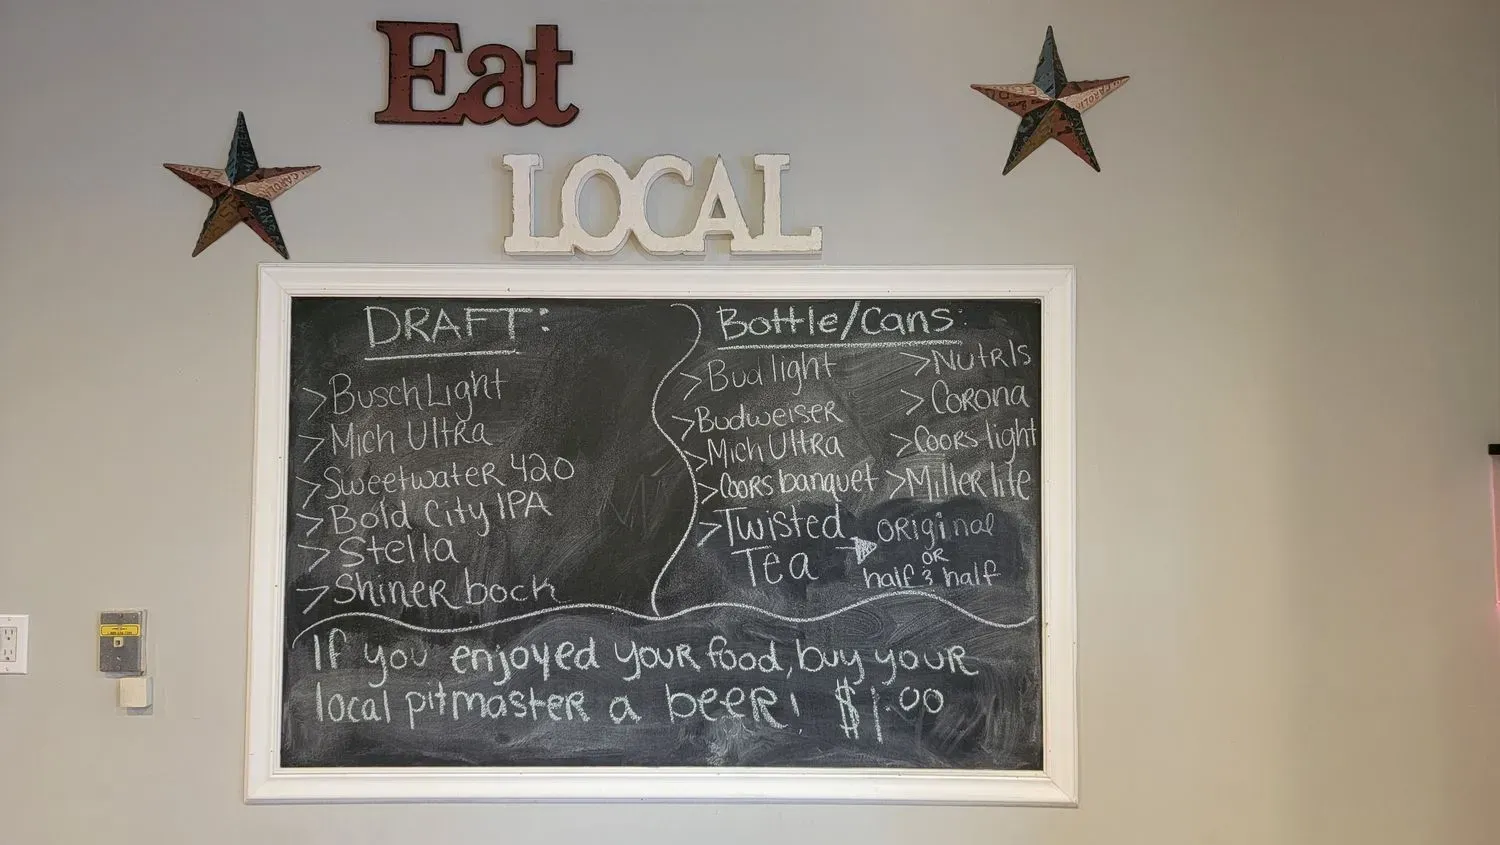 Eat
LOCAL
DRAFT:
>Busch Light
>Mich Ultra
>Sweetwater 420
>Bold City IPA
>Stella
>Shiner bock
Bottle/Cans:
>Bud light
>Budweiser
>Mich Ultra
>Coors banquet
>Twisted
Tea
original
or
half & half
>Nutrls
>Corona
>Coors light
>Miller lite
If you enjoyed your food, buy your
local pitmaster a beer! $1.00